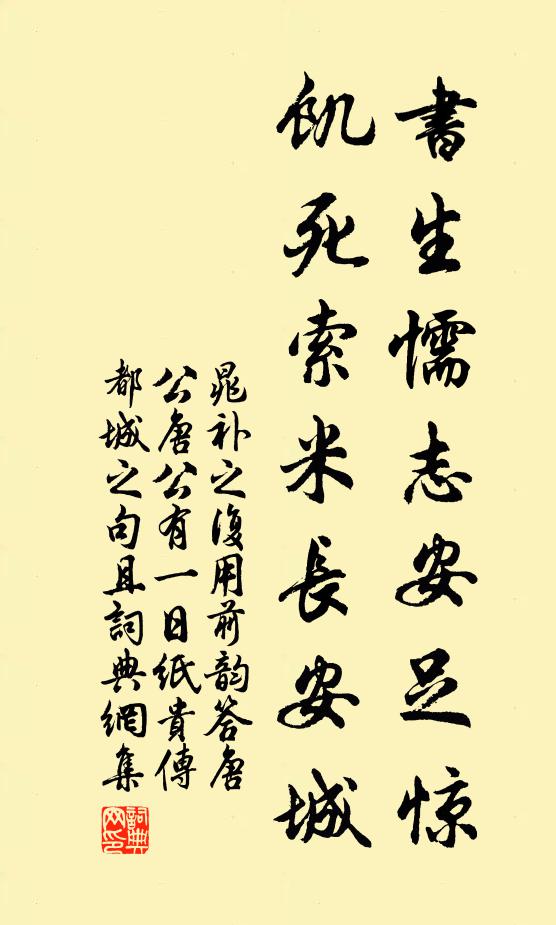 書生懦志安足惊
飢死索米長安城
晁补之復用前韵答唐
公唐公有一日紙貴傳
都城之句且詞典網集
詞典
网印